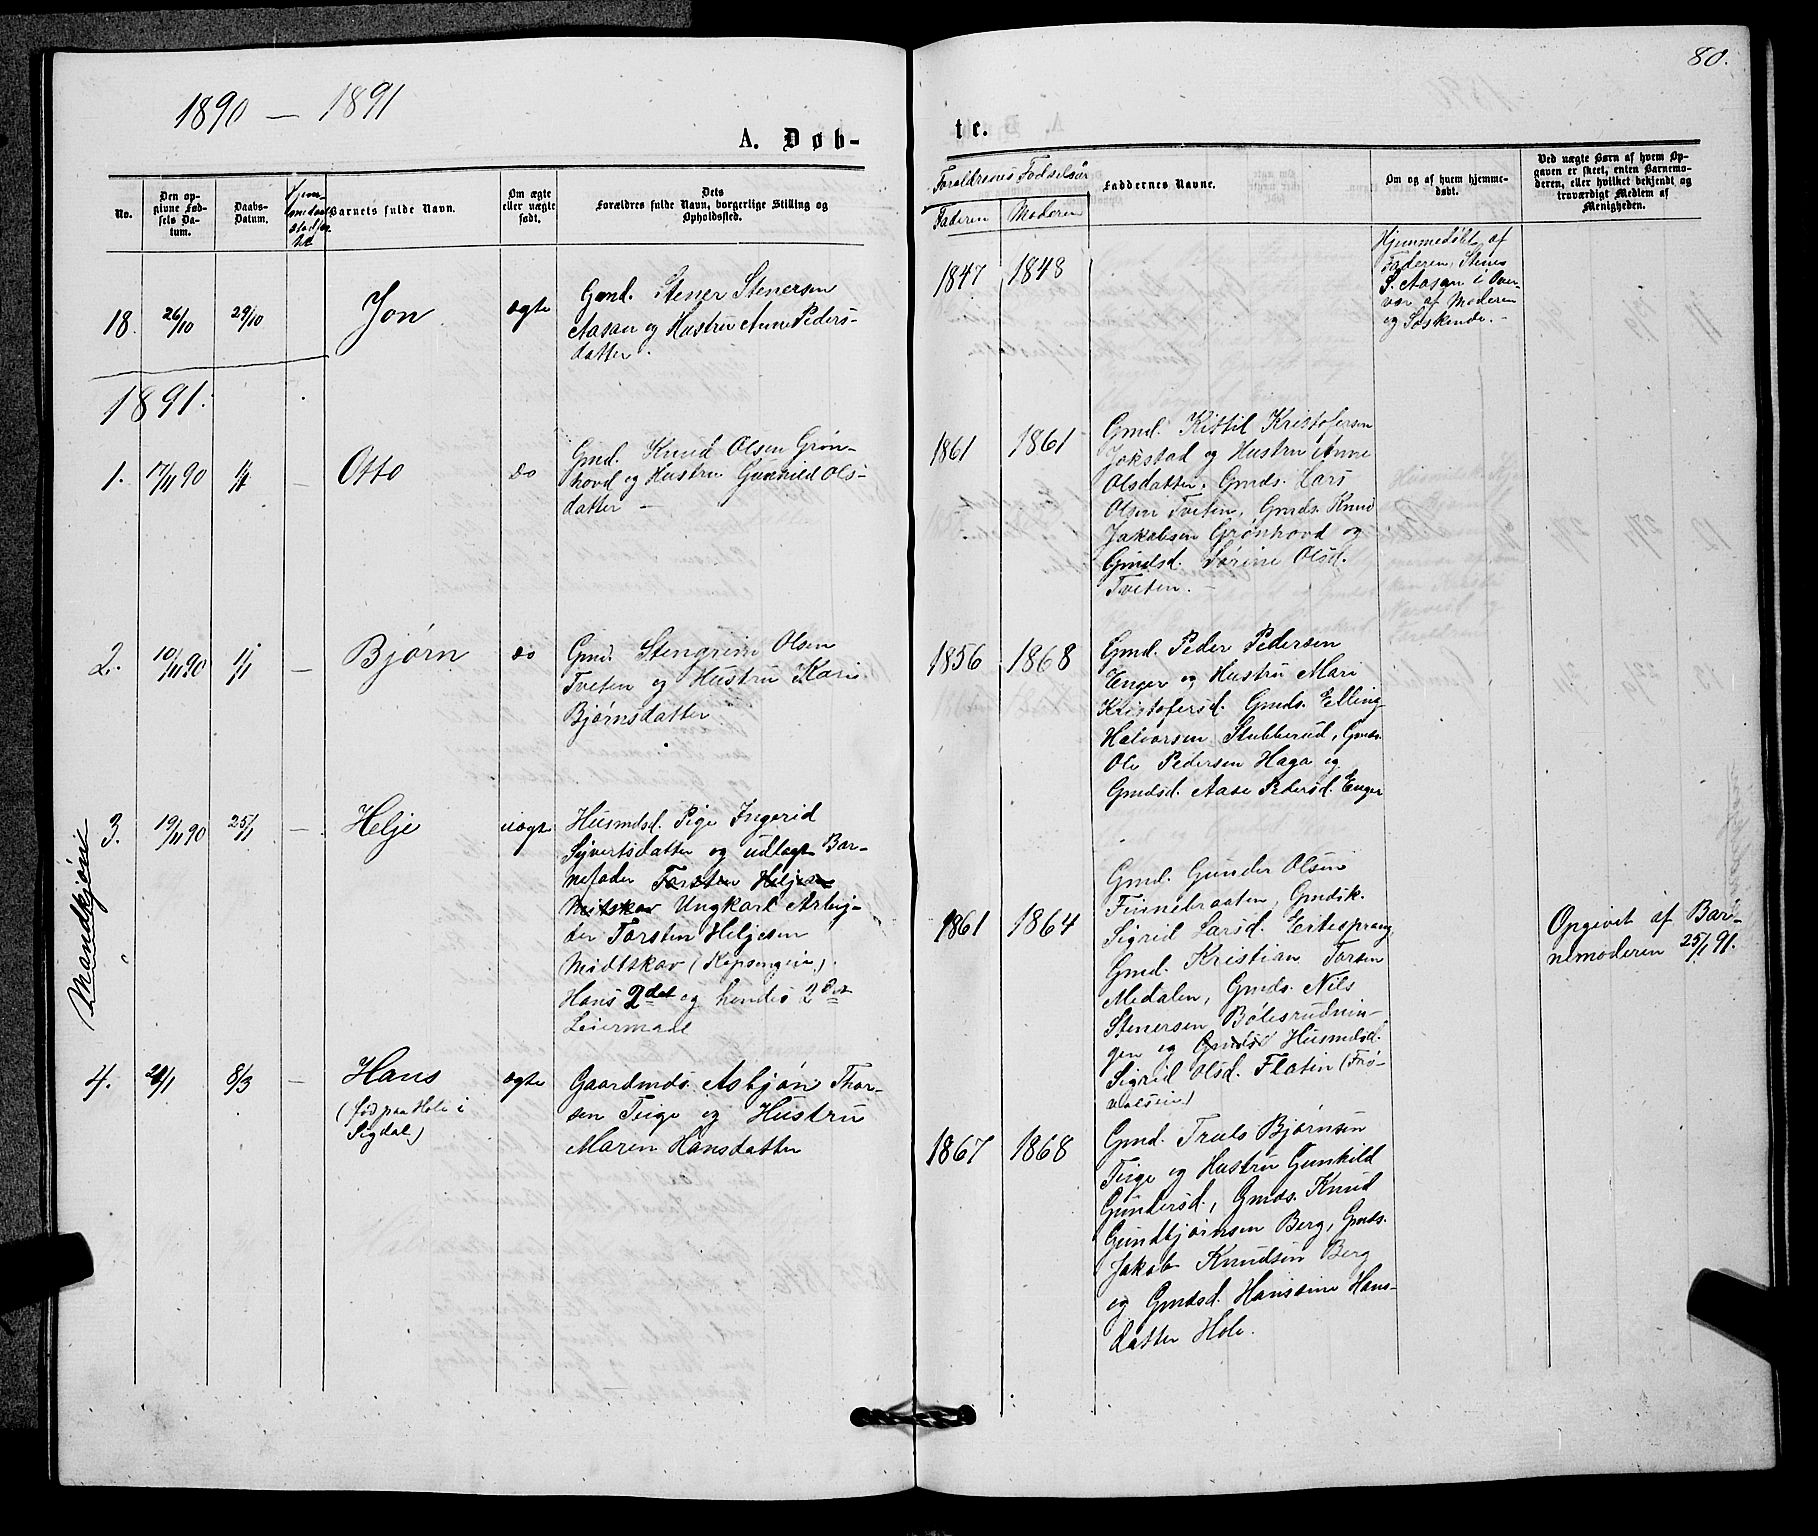 1890 — 1891
80.
A. Døb-
te.
No.
Den op-
givne Fød-
sels Da-
tum.
Daabs-
Datum.
Barnets fulde Navn.
Om ægte
eller uægte
født.
Dets
Forældres fulde Navn, borgerlige Stilling og
Opholdssted.
Forældrenes Fødselsår
Faderen
Moderen
Faddernes Navne.
Om og af hvem hjemme-
døbt.
Ved uægte Børn af hvem Op-
gaven er skeet, enten Barnemo-
deren, eller hvilket bekjendt og
troværdigt Medlem af
Menigheden.
18. 26/10 29/10 Jon ægte
Gmd. Stener Stenersen
Aasan og Hustru Anne Peders-
datter.
1847 1848
Hjemmedøbt af
Faderen, Stener
S. Aasan i Over-
vær af Moderen
og Søskende. -
1891.
1. 17/11 90 1/1 — Otto do
Gmd. Knud Olsen Grøn-
hovd og Hustru Gunhild Ols-
datter —
1861 1861
Gmd. Kittil Kristofersen
Jokstad og Hustru Anne
Olsdatter, Gmds. Lars
Olsen Tveten, Gmds. Knud
Jakobsen Grønhovd og
Gmdsd. Sørine Olsd.
Tveten. -
2. 10/11 90 1/1 — Bjørn do
Gmd. Stengrim Olsen
Tveten og Hustru Kari
Bjørnsdatter
1856 1868
Gmd. Peder Pedersen
Enger og Hustru Mari
Kristofersd. Gmds. Elling
Halvorsen Stubberud, Gmds.
Ole Pedersen Haga og
Gmdsd. Aase Pedersd. Enger
Mandkjøn
3. 19/11 90 25/1 — Helje uægte
Husmdsd. Pige Ingerid
Sjvertsdatter og udlagt Bar-
nefader Torsten Heljesen
Midtskov Ungkarl Arbej-
der Torsten Heljesen
Midtskov
Hans 2det og hendes 2det
Leiermaal
1861 1864
Gmd. Gunder Olsen
Finnebraaten, Gmdsk.
Sigrid Larsd. Ertesprang
Gmd. Kristian Torsen
Medalen, Gmds. Nils
Stenersen Bølesrudnin-
gen og Gmdsd Husmdsd.
Sigrid Olsd. Flatin
Opgivet af Bar-
nemoderen 25/1 91.
4. 8/3 — Hans ægte
(født paa Hole i
Sigdal)
Gaardmds. Asbjøn Thor-
sen Teige og Hustru
Maren Hansdatter
1867 1868
Gmd. Truls Bjørnsen
Teige og Hustru Gunhild
Gundersd., Gmds. Knud
Gundbjørnsen Berg, Gmds.
Jakob Knudsen Berg
og Gmdsd. Hansine Hans-
datter Hole.